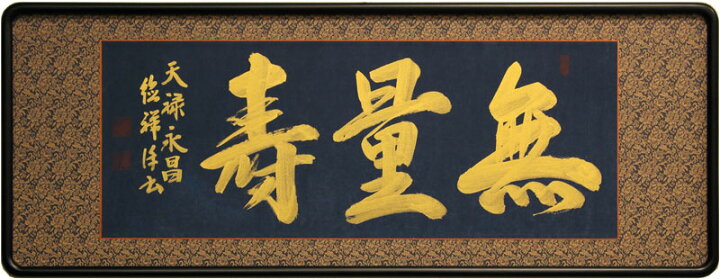 無量壽
天禄永昌